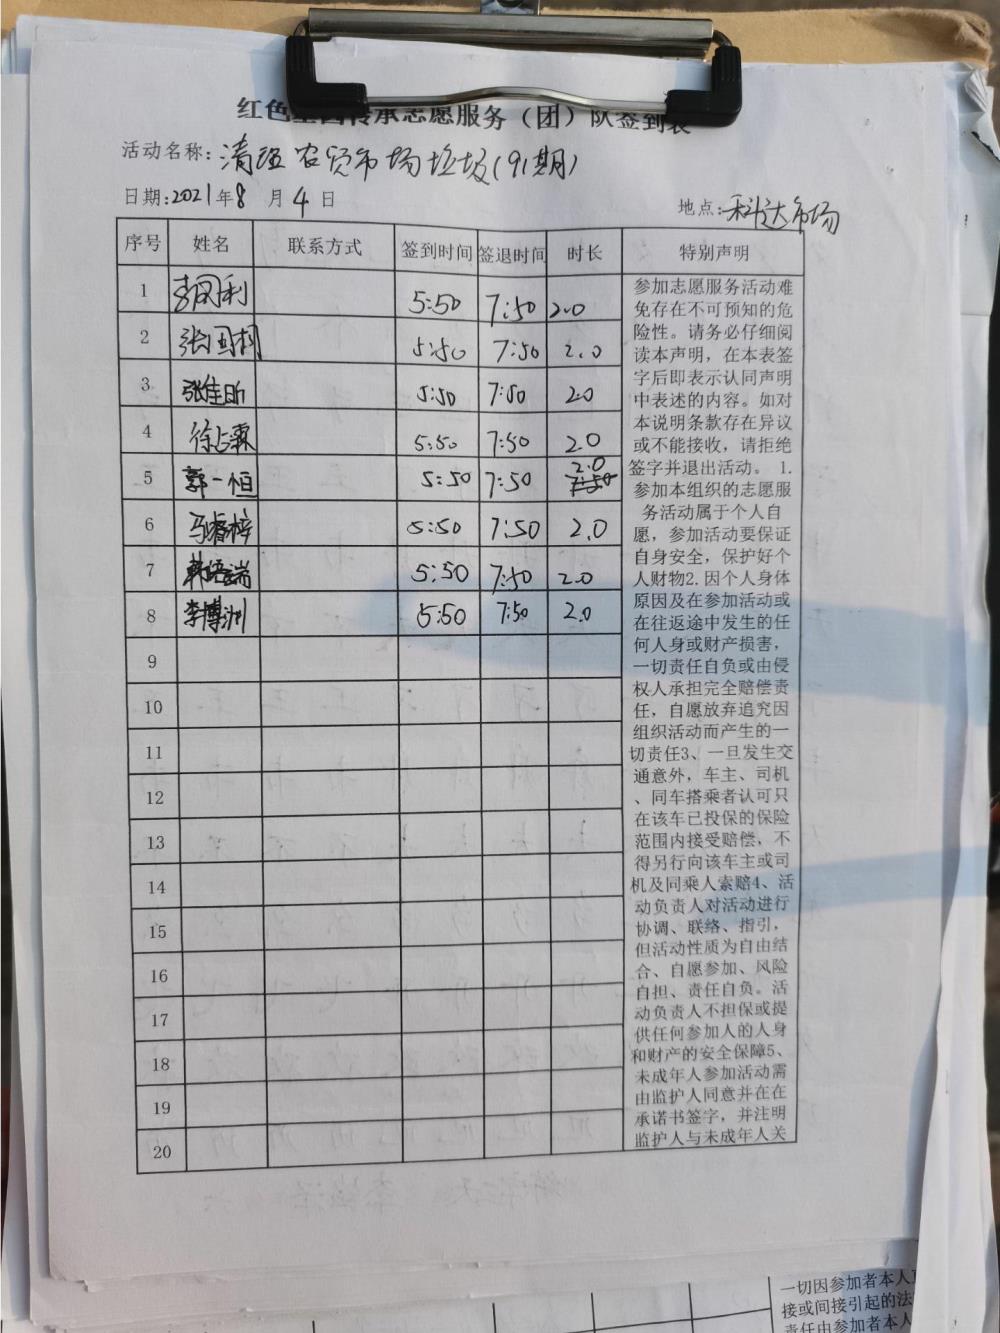 红色 传承志愿服务（团）队签到表
活动名称：清理农贸市场垃圾(91期)
日期：2021年8月4日 地点：科达市场
序号 姓名 联系方式 签到时间 签退时间 时长 特别声明
1 李国利 5:50 7:50 2.0
2 张国栩 5:50 7:50 2.0
3 张佳昕 5:50 7:50 2.0
4 徐占霖 5:50 7:50 2.0
5 郭一恒 5:50 7:50 2.0
6 马睿梓 5:50 7:50 2.0
7 韩培瑞 5:50 7:50 2.0
8 李博洲 5:50 7:50 2.0
9
10
11
12
13
14
15
16
17
18
19
20
参加志愿服务活动难
免存在不可预知的危
险性。请务必仔细阅
读本声明，在本表签
字后即表示认同声明
中表述的内容。如对
本说明条款存在异议
或不能接收，请拒绝
签字并退出活动。 1.
参加本组织的志愿服
务活动属于个人自
愿，参加活动要保证
自身安全，保护好个
人财物2.因个人身体
原因及在参加活动或
在往返途中发生的任
何人身或财产损害，
一切责任自负或由侵
权人承担完全赔偿责
任，自愿放弃追究因
组织活动而产生的一
切责任3、一旦发生交
通意外，车主、司机
、同车搭乘者认可只
在该车已投保的保险
范围内接受赔偿，不
得另行向该车主或司
机及同乘人索赔4、活
动负责人对活动进行
协调、联络、指引，
但活动性质为自由结
合、自愿参加、风险
自担、责任自负。活
动负责人不担保或提
供任何参加人的人身
和财产的安全保障5、
未成年人参加活动需
由监护人同意并在在
承诺书签字，并注明
监护人与未成年人关
一切因参加者本人
接或间接引起的法
责任由参加者本人